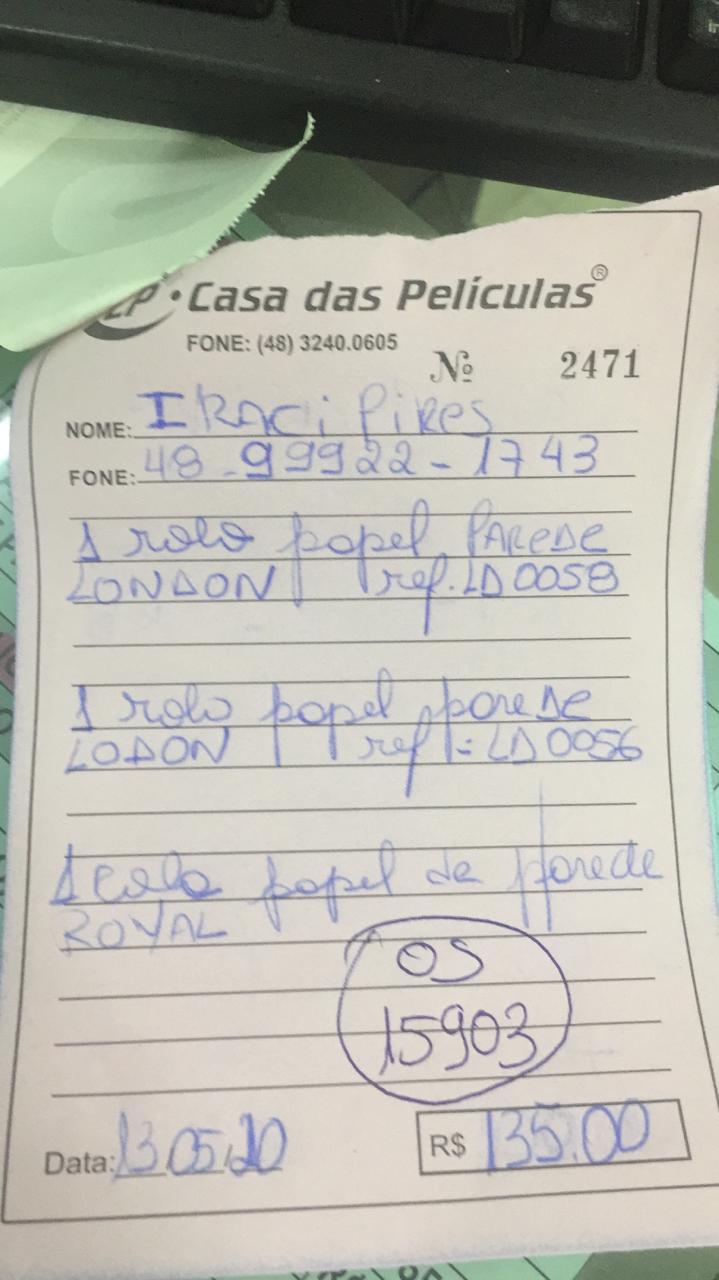 CP • Casa das Películas®
FONE: (48) 3240.0605
Nº 2471
NOME: IRACi PiRES
FONE: 48-99922-1743
1 rolo papel PAREDE
LONDON ref. LD0058
1 rolo papel pareDE
LODON ref: LD0056
1 cola papel de parede
ROYAL
OS
15903
Data: 13.05.20
R$ 135.00